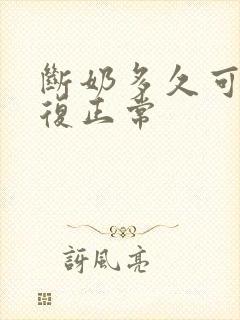 斷奶多久可
復正常
訝風亮